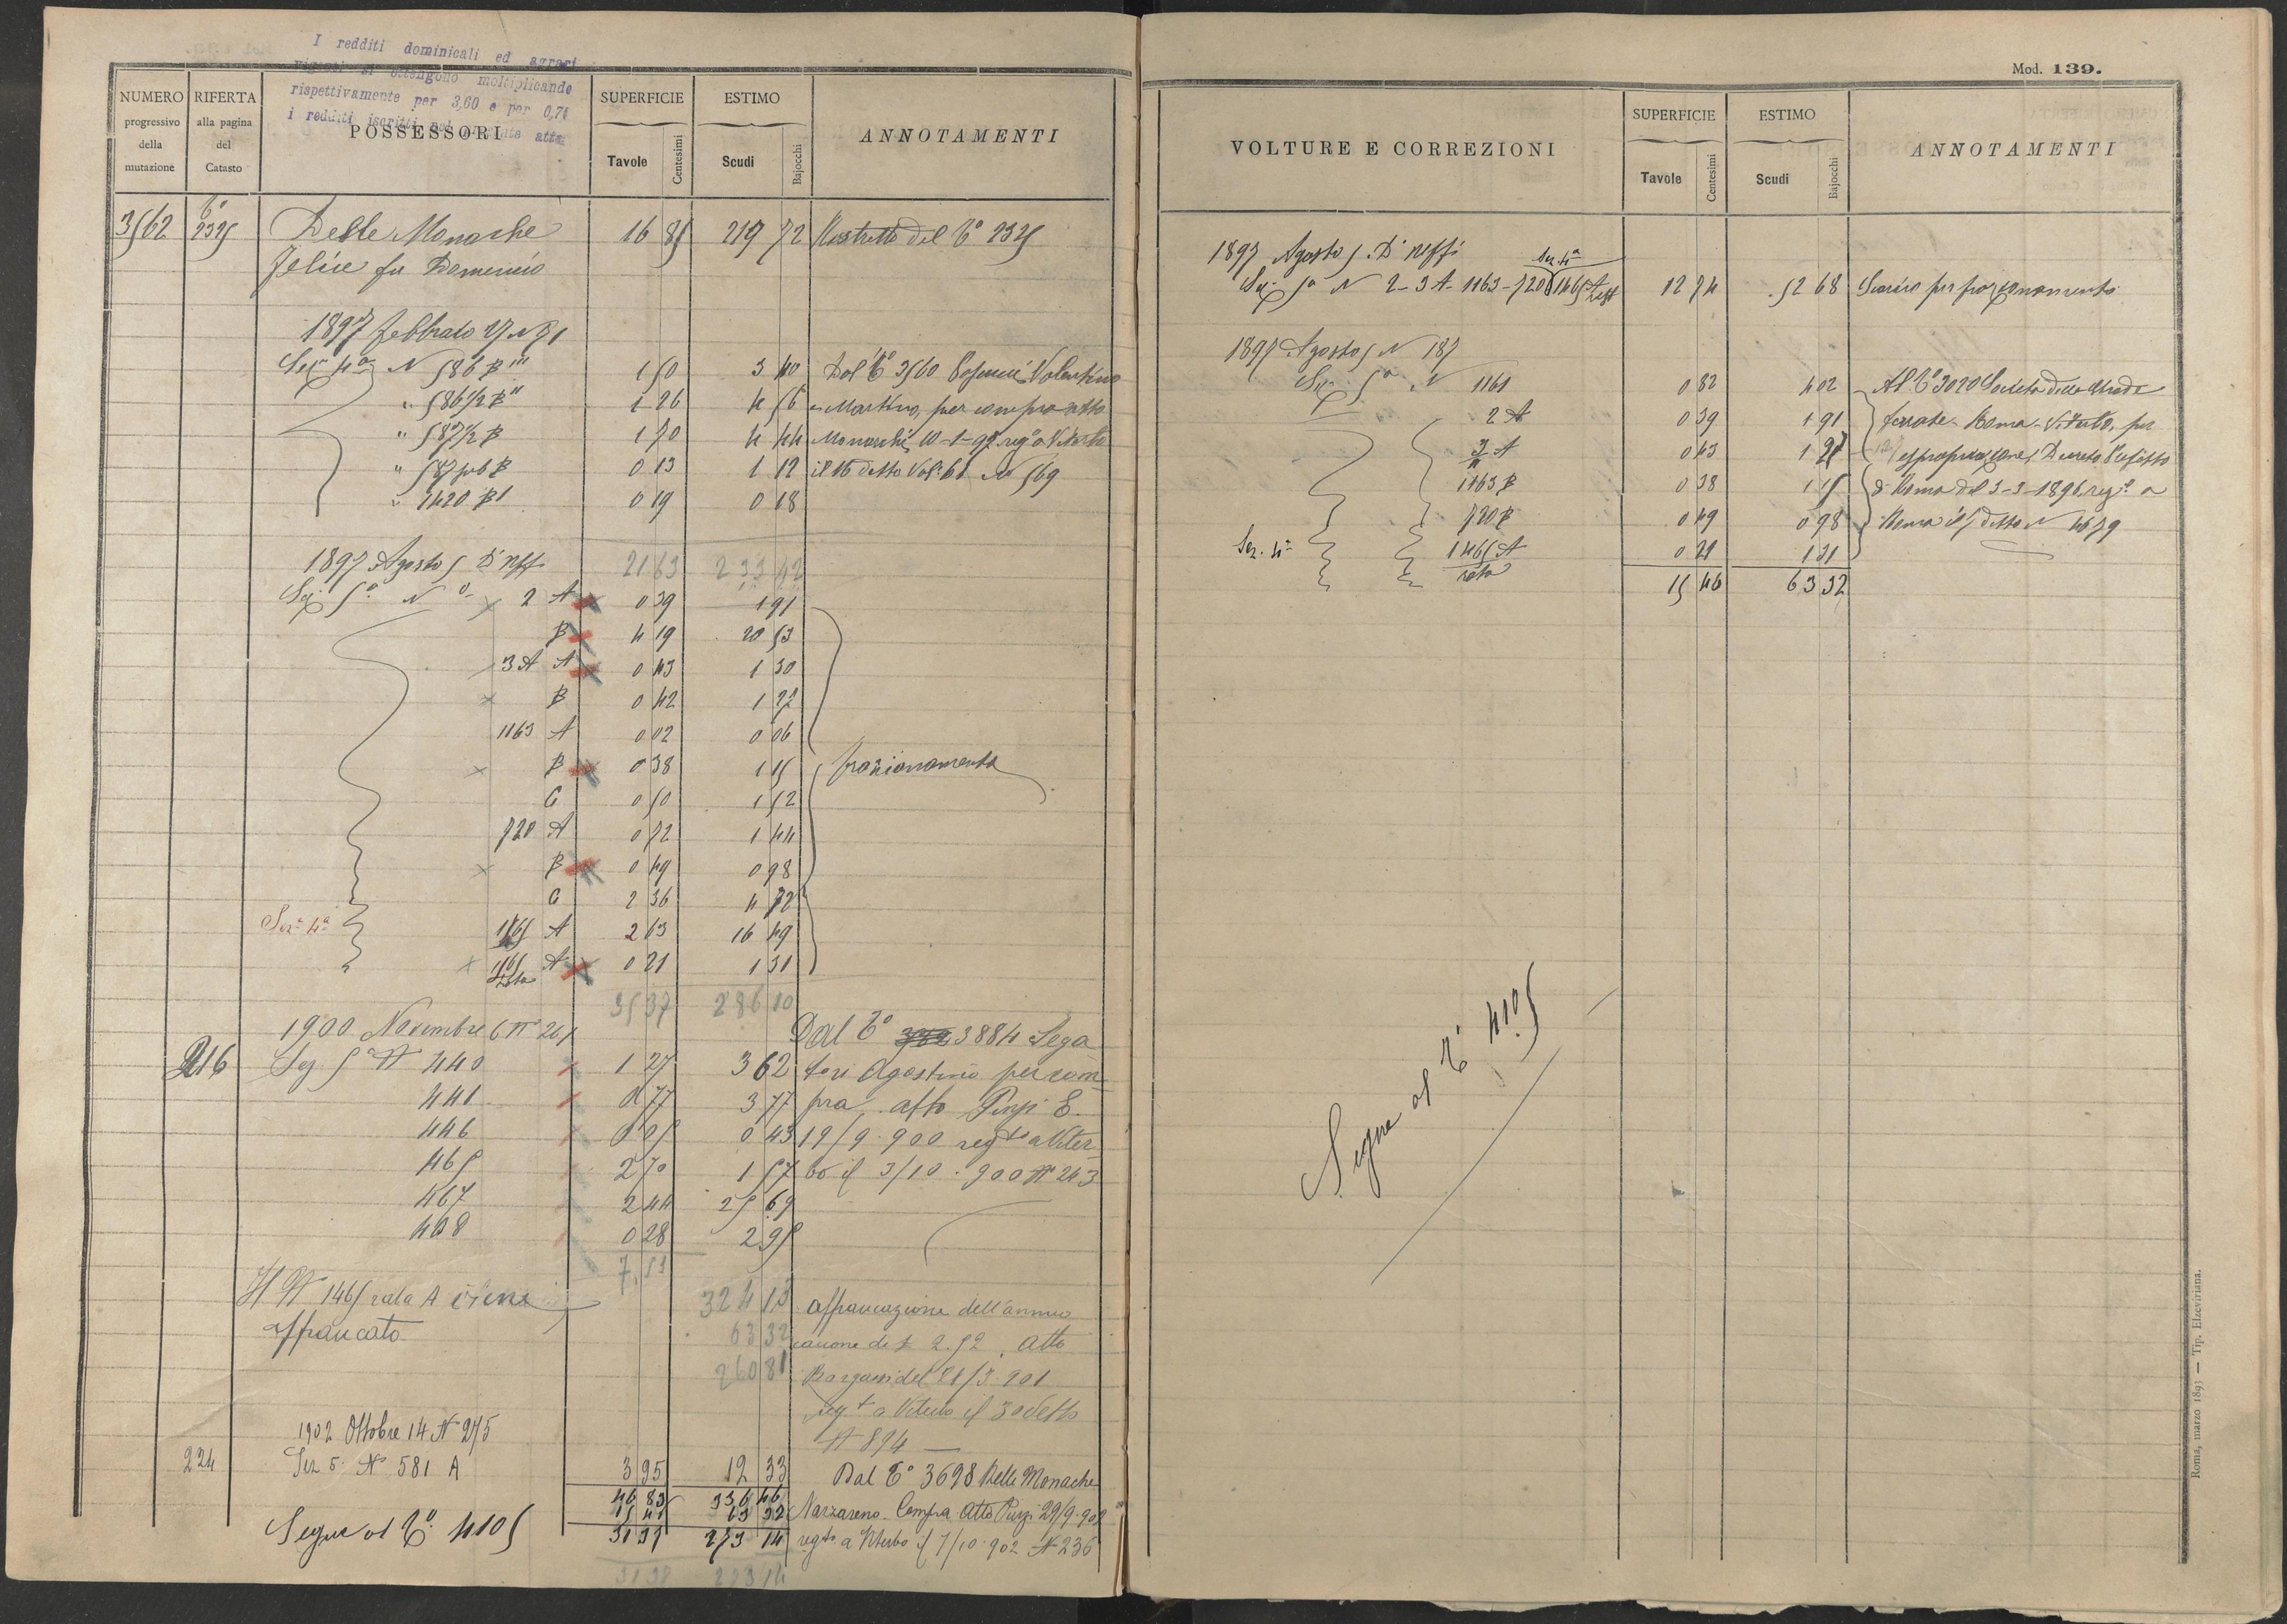 I redditi dominicali ed agrari
vigenti si ottengono moltiplicando
rispettivamente per 3,60 e per 0,71
i redditi iscritti nel presente atto
NUMERO progressivo della mutazione
RIFERTA alla pagina del Catasto
POSSESSORI
SUPERFICIE
Tavole Centesimi
ESTIMO
Scudi Bajocchi
ANNOTAMENTI
3562 2325 Delle Monache 16 85 219 72 Ristretto del C° 2325
Felice fu Domenico
1897 Febbraio 17 N 31
Sez 4a N 586 B''' 1 50 3 40 Dal C° 3560 Valentino
" 586 1/2 B'' 1 26 4 56 e Martino, per compra atto
" 587 1/2 B 1 70 4 44 Monarchi 10-1-97 reg° a Viterbo
" 587 sub B 0 13 1 12 il 16 detto Vol: 61 N 569
" 1420 B1 0 19 0 18
1897 Agosto 5 D'Uff. 21 63 233 42
Sez 5a N° 2 A 0 39 1 91
B 4 19 20 53
3A A 0 43 1 30
B 0 42 1 27
1163 A 0 02 0 06
B 0 38 1 15 frazionamento
C 0 50 1 52
720 A 0 72 1 44
B 0 49 0 98
C 2 36 4 72
Sez 4a 1465 A 2 63 16 49
1465 A 0 21 1 31
35 37 286 10
1900 Novembre 6 N° 261 Dal C° 3884 Sega
216 Sez 5a N° 440 1 27 3 62 tori Agostino per com
441 0 77 3 77 pra atto Pinzi E.
446 0 05 0 43 19/9.900 regto a Viter
465 2 70 1 57 bo il 3/10.900 N° 243
467 2 44 25 69
468 0 28 2 95
7,51
Il N° 1465 rata A viene 324 13 affrancazione dell'annuo
affrancato 63 32 canone di £ 2.52. Atto
260 81 Borgassi del 21/3 901
regt a Viterbo il 30 detto
N 894
1902 Ottobre 14 N° 275
224 Sez 5a N° 581 A 3 95 12 33 Dal C° 3698 Delle Monache
46 83 336 46 Nazzareno Compra Atto Pinzi 29/9.902
15 46 63 32
Segue al C° 4105 31 37 273 14 regto a Viterbo il 7/10.902 N° 236
31 38 273 14
Mod. 139.
VOLTURE E CORREZIONI
SUPERFICIE
Tavole Centesimi
ESTIMO
Scudi Bajocchi
ANNOTAMENTI
1897 Agosto 5. D'Uffi Sez. 4a
Sez 5a N 2-3A-1163-720 1465 12 74 52 68 Scarico per frazionamento
1897 Agosto 5 N 187
Sez. 5a N 1161 0 82 4 02 Al C° 3020 Società delle Strade
2 A 0 39 1 91 ferrate Roma-Viterbo, per
3 A 0 43 1 27 espropriazione, Decreto Prefetto
1163 B 0 38 1 15 di Roma del 3-3-1896 reg° a
720 B 0 49 0 98 Roma il 5 detto N 4679
Sez. 4a 1465 A 0 21 1 31
rata 15 46 63 32
Segue al C° 4105
Roma, marzo 1893 — Tip. Elzeviriana.